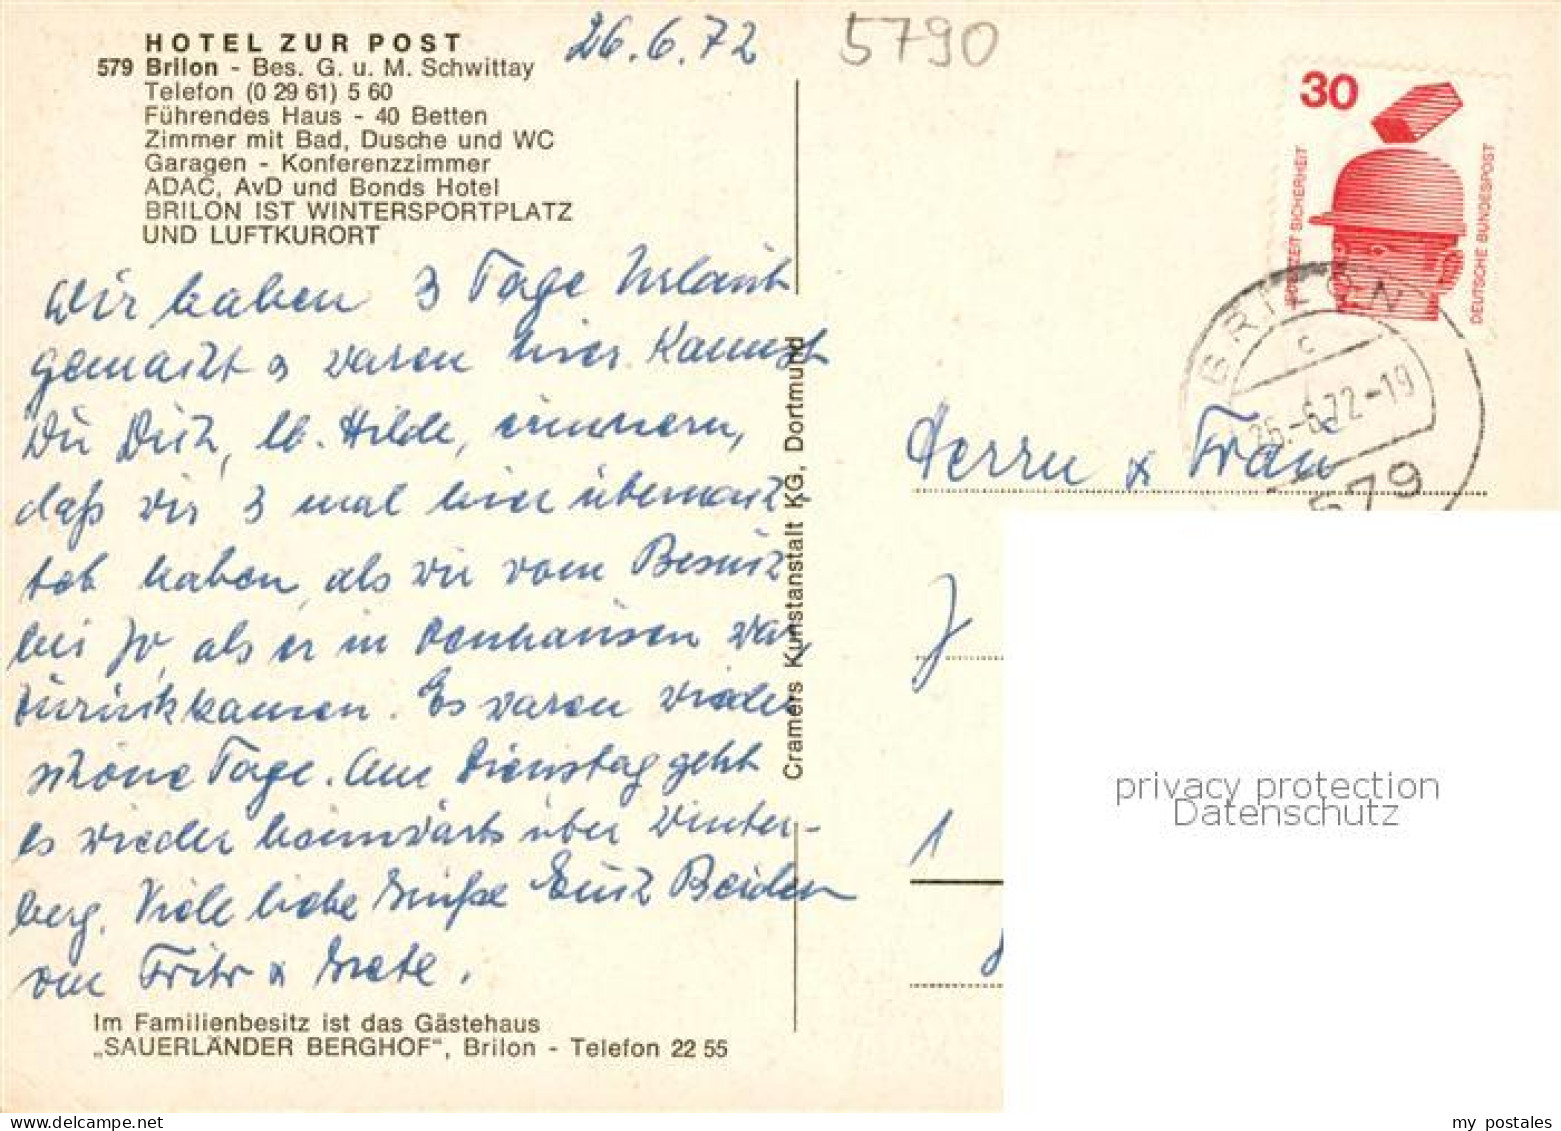 HOTEL ZUR POST
579 Brilon - Bes. G. u. M. Schwittay
Telefon (0 29 61) 5 60
Führendes Haus - 40 Betten
Zimmer mit Bad, Dusche und WC
Garagen - Konferenzzimmer
ADAC, AvD und Bonds Hotel
BRILON IST WINTERSPORTPLATZ
UND LUFTKURORT
26.6.72
5790
Wir haben 3 Tage Urlaub
gemacht & waren hier. Kannst
Du Dich, lb. Hilde, erinnern,
daß wir 3 mal hier übernach-
tet haben, als wir vom Besuch
bei Jo, als er in war,
zurückkamen. Es waren wieder
schöne Tage. Am Dienstag geht
es wieder heimwärts über Winter-
berg. Viele liebe Grüße Euch Beiden
von Fritz & Grete.
Im Familienbesitz ist das Gästehaus
„SAUERLÄNDER BERGHOF“, Brilon - Telefon 22 55
Cramers Kunstanstalt KG, Dortmund
30
JEDERZEIT SICHERHEIT
DEUTSCHE BUNDESPOST
BRILON
c
26.-6.72-19
579
Herrn & Frau
J
1
privacy protection
Datenschutz
my postales